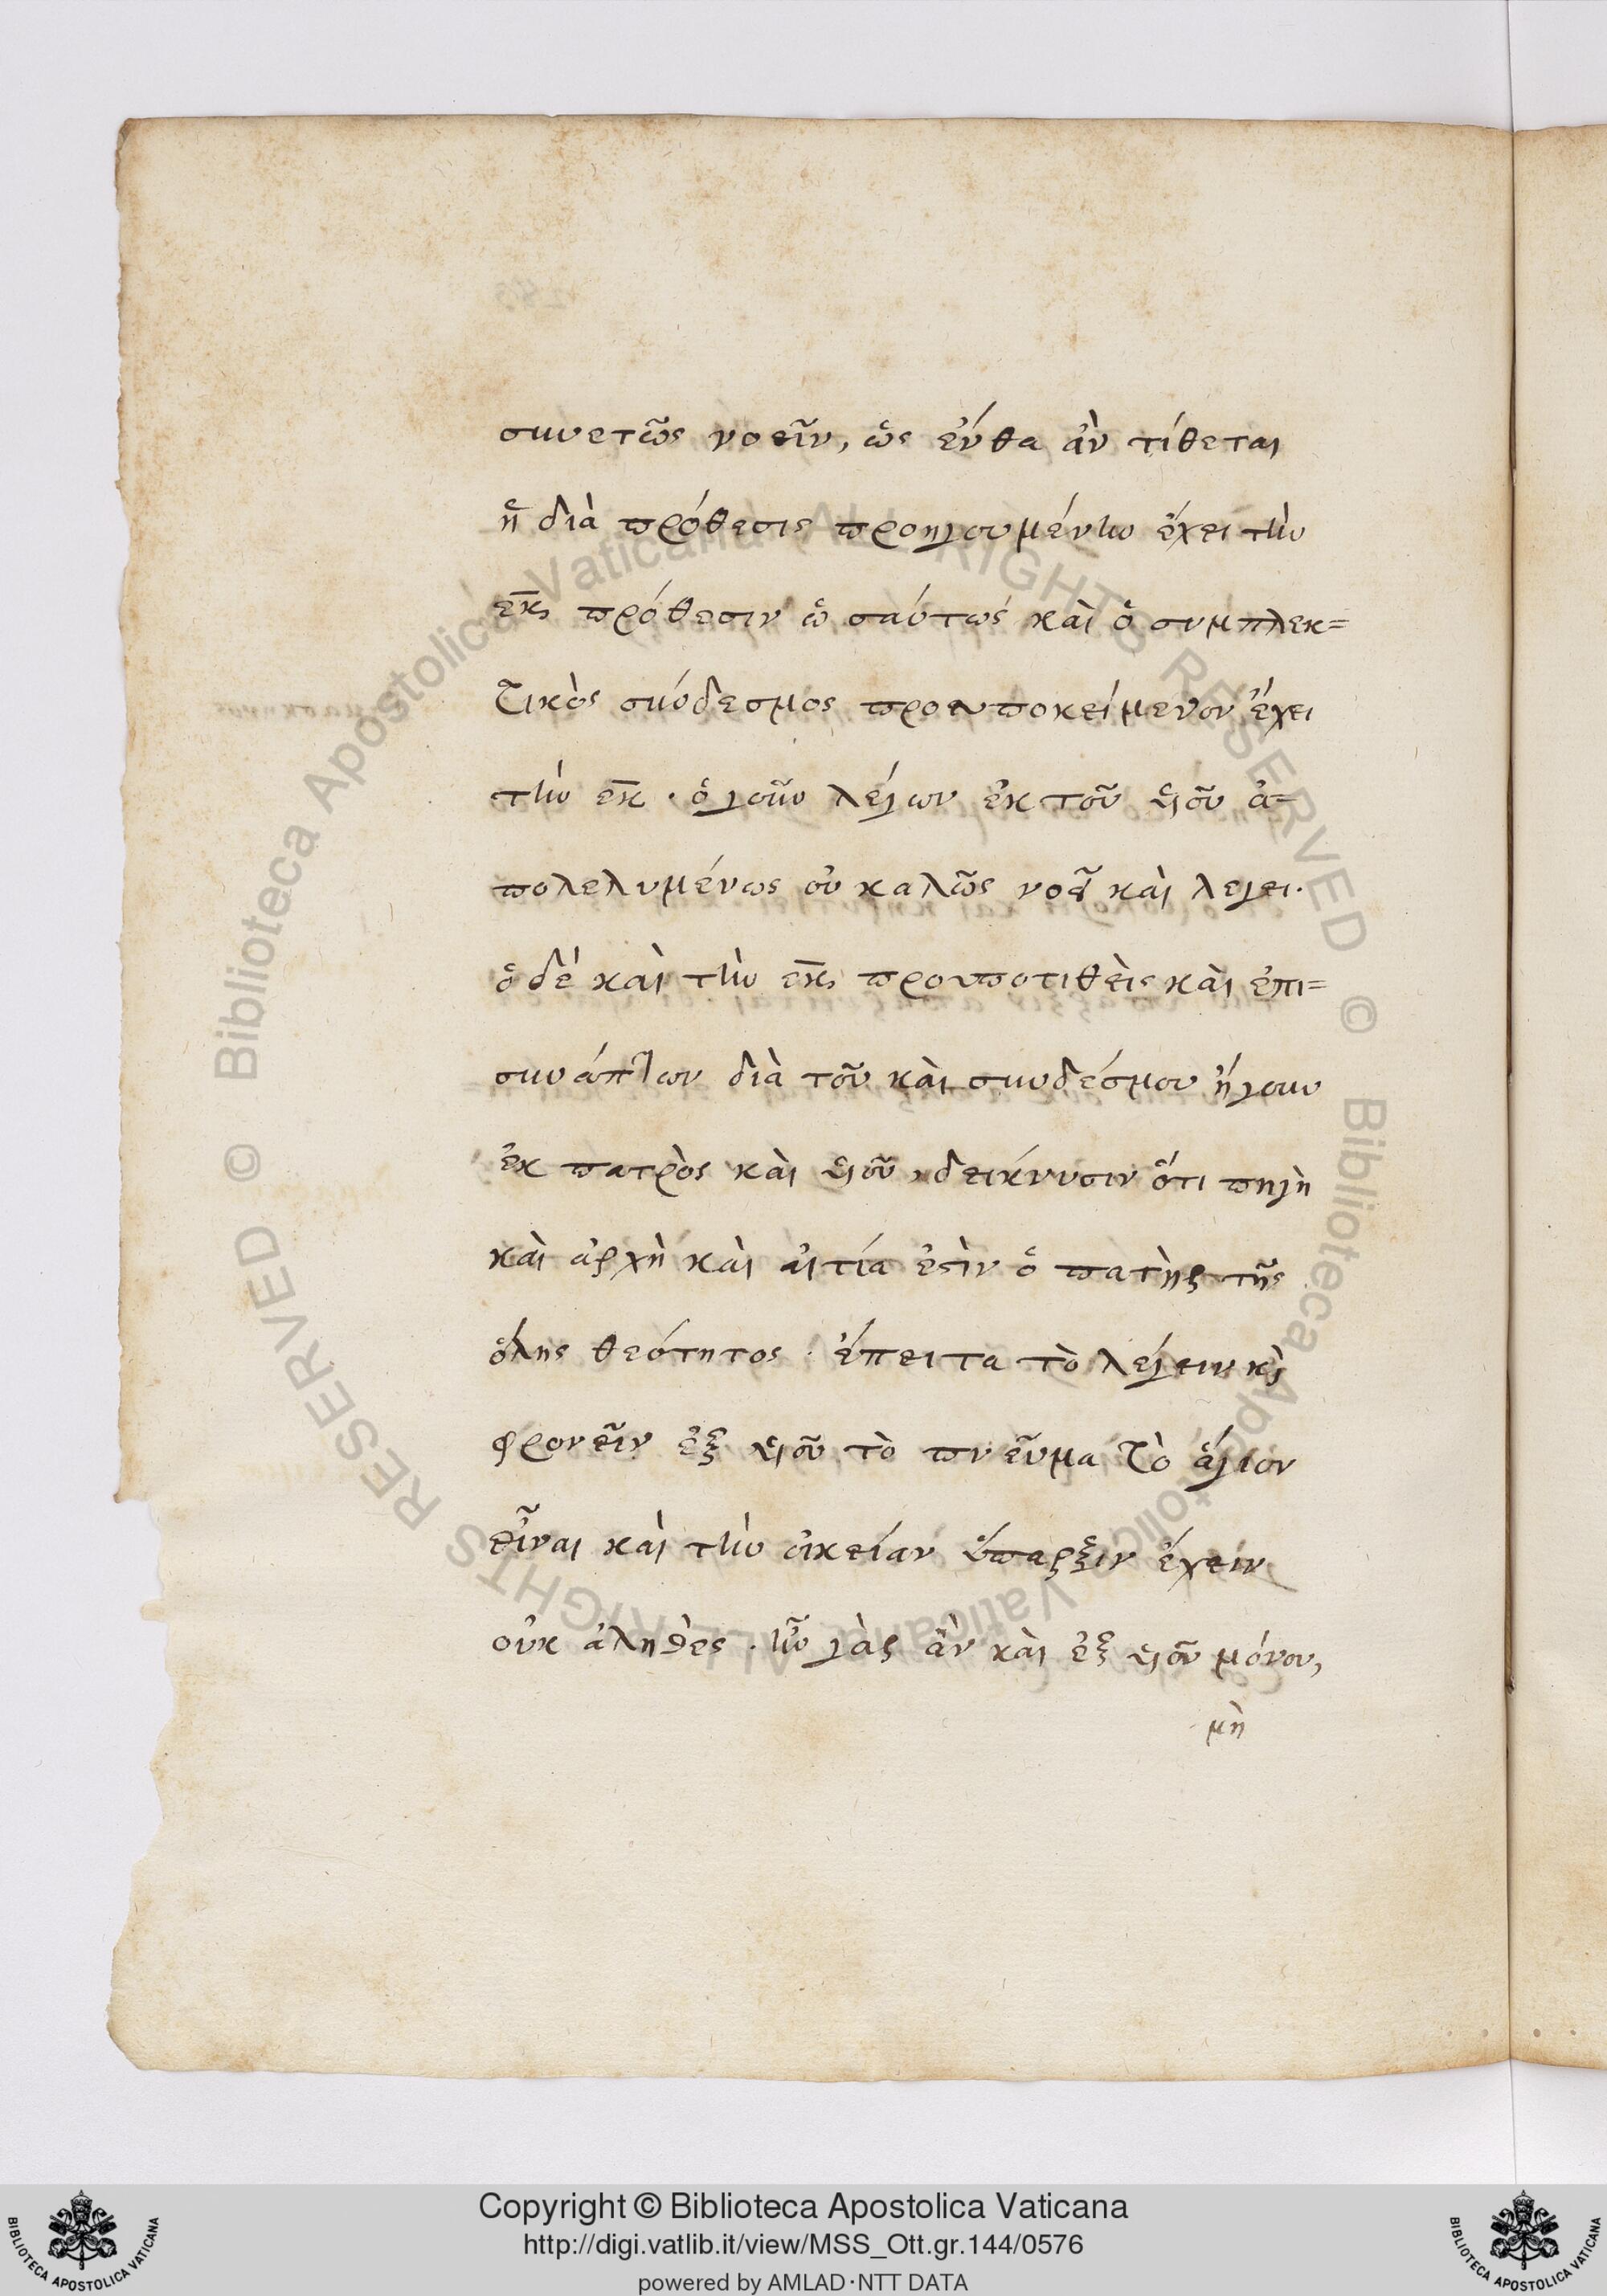 συνετῶς νοεῖν, ὡς ἔνθα ἂν τίθεται
ἡ διὰ πρόθεσις προηγουμένην ἔχει τὴν
ἐκ πρόθεσιν ὡσαύτως καὶ ὁ συμπλεκ=
τικὸς σύνδεσμος προυποκείμενον ἔχει
τὴν ἐκ · ὁ γοῦν λέγων ἐκ τοῦ υἱοῦ ἀ=
πολελυμένως οὐ καλῶς νοεῖ καὶ λέγει·
ὁ δὲ καὶ τὴν ἐκ προυποτιθεὶς καὶ ἐπι=
συνάπτων διὰ τοῦ καὶ συνδέσμου ἤγουν
ἐκ πατρὸς καὶ υἱοῦ, δείκνυσιν ὅτι πηγὴ
καὶ ἀρχὴ καὶ αἰτία ἐστὶν ὁ πατὴρ τῆς
ὅλης θεότητος · ἔπειτα τὸ λέγειν κὶ
φρονεῖν ἐξ υἱοῦ τὸ πνεῦμα τὸ ἅγιον
εἶναι καὶ τὴν οἰκείαν ὕπαρξιν ἔχειν
οὐκ ἀληθὲς · ἦν γὰρ ἂν καὶ ἐξ υἱοῦ μόνου,
μὴ
© Biblioteca Apostolica Vaticana ALL RIGHTS RESERVED © Biblioteca Apostolica Vaticana ALL RIGHTS RESERVED
BIBLIOTECA APOSTOLICA VATICANA
Copyright © Biblioteca Apostolica Vaticana
http://digi.vatlib.it/view/MSS_Ott.gr.144/0576
powered by AMLAD·NTT DATA
BIBLIOTECA APOSTOLICA VATICANA